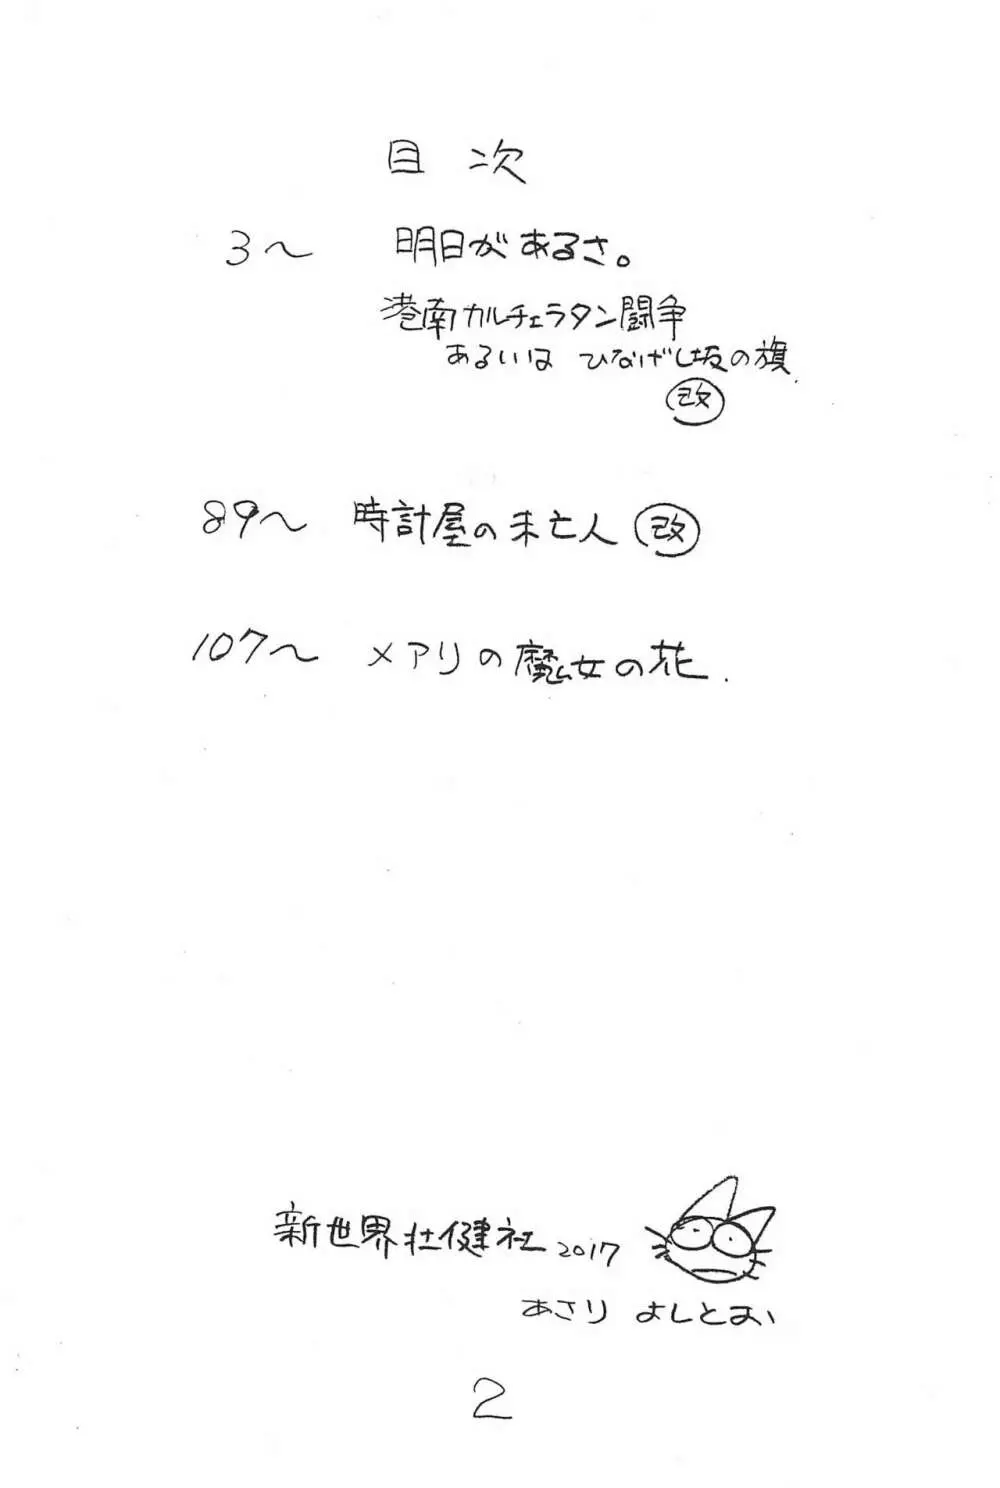 目次
3〜 明日があるさ。
港南カルチェラタン闘争
あるいは ひなげし坂の旗.
改
89〜 時計屋の未亡人 改
107〜 メアリの魔女の花.
新世界壮健社 2017
あさり よしとお
2